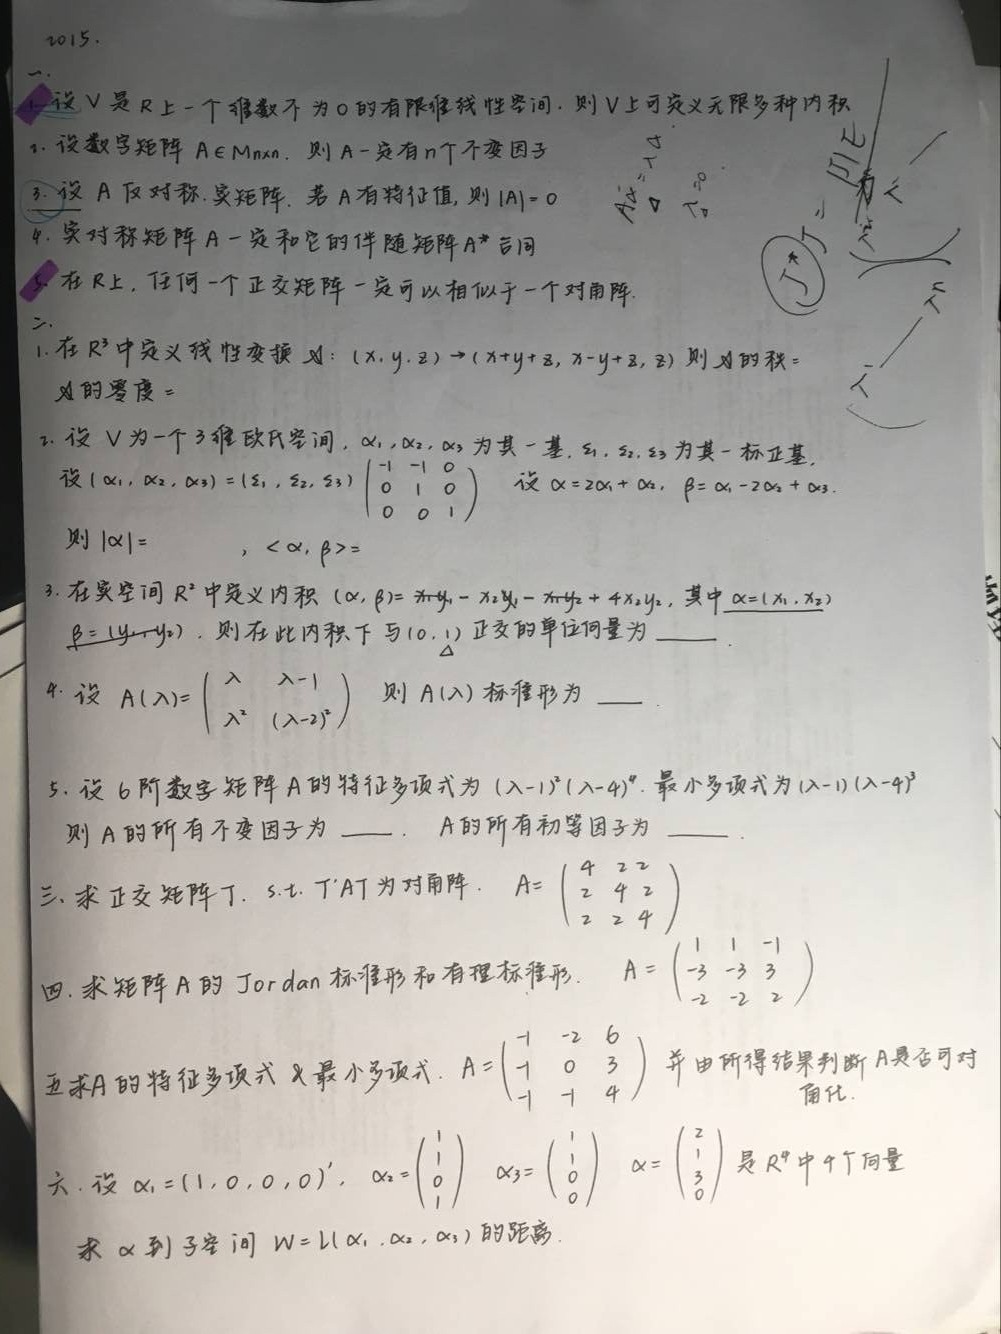 2015.
一.
1. 设 V 是 R 上一个维数不为 0 的有限维线性空间. 则 V 上可定义无限多种内积
2. 设数字矩阵 A∈Mn×n. 则 A 一定有 n 个不变因子
3. 设 A 反对称.实矩阵. 若 A 有特征值, 则 |A|=0
4. 实对称矩阵 A 一定和它的伴随矩阵 A* 合同
5. 在 R 上, 任何一个正交矩阵一定可以相似于一个对角阵.
二.
1. 在 R³ 中定义线性变换 𝒜: (x.y.z)→(x+y+z, x-y+z, z) 则 𝒜 的秩=
𝒜 的零度=
2. 设 V 为一个 3 维欧氏空间, α₁,α₂,α₃ 为其一基. ε₁, ε₂, ε₃ 为其一标正基.
设 (α₁, α₂, α₃) = (ε₁, ε₂, ε₃) ( -1 -1 0 ; 0 1 0 ; 0 0 1 ) 设 α=2α₁+α₂, β=α₁-2α₂+α₃.
则 |α|= , <α, β>=
3. 在实空间 R² 中定义内积 (α, β)= x₁y₁ - x₂y₁ - x₁y₂ + 4x₂y₂, 其中 α=(x₁, x₂)
β=(y₁, y₂). 则在此内积下与 (0, 1) 正交的单位向量为 ____ .
4. 设 A(λ)= ( λ λ-1 ; λ² (λ-2)² ) 则 A(λ) 标准形为 ___ .
5. 设 6 阶数字矩阵 A 的特征多项式为 (λ-1)²(λ-4)⁴. 最小多项式为 (λ-1)(λ-4)³
则 A 的所有不变因子为 ____ . A 的所有初等因子为 ____ .
三. 求正交矩阵 T. s.t. T'AT 为对角阵. A= ( 4 2 2 ; 2 4 2 ; 2 2 4 )
四. 求矩阵 A 的 Jordan 标准形和有理标准形. A= ( 1 1 -1 ; -3 -3 3 ; -2 -2 2 )
五 求 A 的特征多项式 & 最小多项式. A= ( -1 -2 6 ; -1 0 3 ; -1 -1 4 ) 并由所得结果判断 A 是否可对
角化.
六. 设 α₁=(1, 0, 0, 0)', α₂= ( 1 ; 1 ; 0 ; 1 ) α₃= ( 1 ; 1 ; 0 ; 0 ) α= ( 2 ; 1 ; 3 ; 0 ) 是 R⁴ 中 4 个向量
求 α 到子空间 W=L(α₁, α₂, α₃) 的距离.